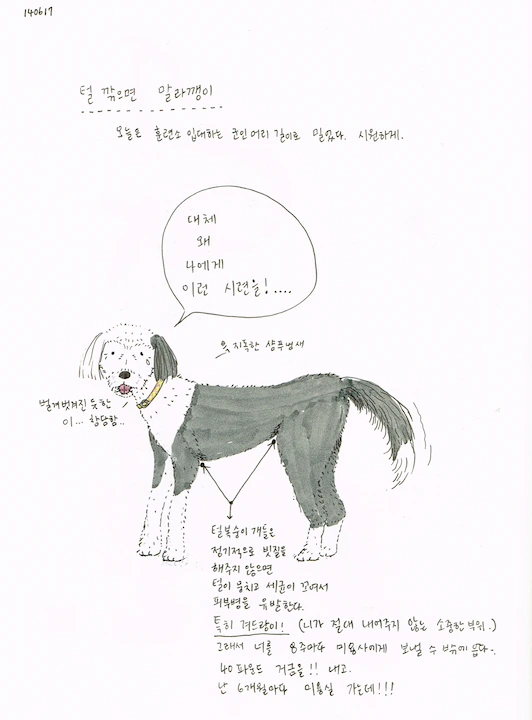 140617
털 깎으면 말라깽이
오늘은 훈련소 입대하는 군인머리 길이로 밀었다. 시원하게.
대체
왜
나에게
이런 시련을!....
윽 지독한 샴푸냄새
벌개벗겨진 듯한
이... 황당함..
털복숭이 개들은
정기적으로 빗질을
해주지 않으면
털이 뭉치고 세균이 꼬여서
피부병을 유발한다.
특히 겨드랑이! (니가 절대 내어주지 않는 소중한 부위.)
그래서 너를 8주마다 미용사에게 보낼 수 밖에 없다.
40파운드 거금을!! 내고.
난 6개월마다 미용실 가는데!!!